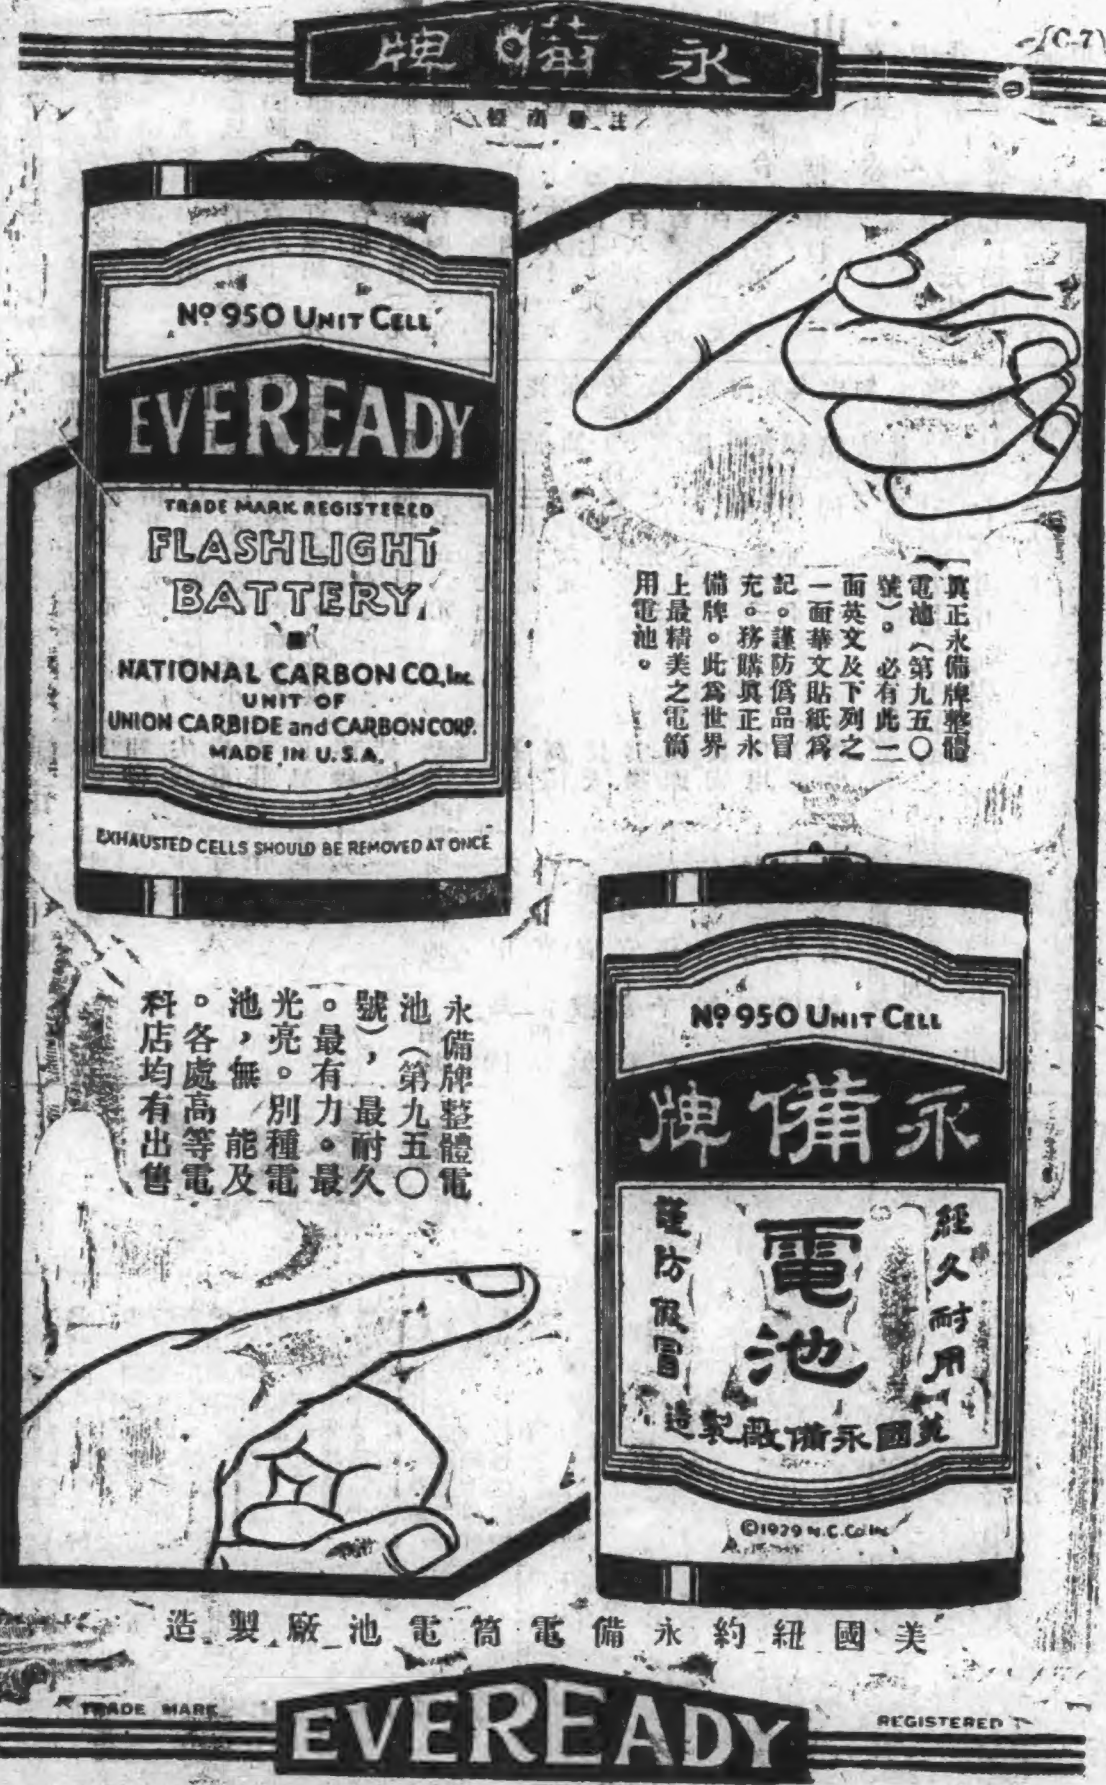 (C-7)
永備牌
註冊商標
No 950 UNIT CELL
EVEREADY
TRADE MARK REGISTERED
FLASHLIGHT
BATTERY
NATIONAL CARBON CO., Inc.
UNIT OF
UNION CARBIDE and CARBON CORP.
MADE IN U.S.A.
EXHAUSTED CELLS SHOULD BE REMOVED AT ONCE
真正永備牌整體
電池（第九五〇
號）。必有此一
面英文及下列之
一面華文貼紙為
記。謹防僞品冒
充。務購真正永
備牌。此為世界
上最精美之電筒
用電池。
永備牌整體電
池（第九五〇
號），最耐久
。最有力。最
光亮。別種電
池，無能及
。各處高等電
料店均有出售
No 950 UNIT CELL
永備牌
經久耐用
電池
謹防假冒
美國永備廠製造
©1929 N.C.Co. Inc.
美國紐約永備電筒電池廠製造
TRADE MARK
EVEREADY
REGISTERED